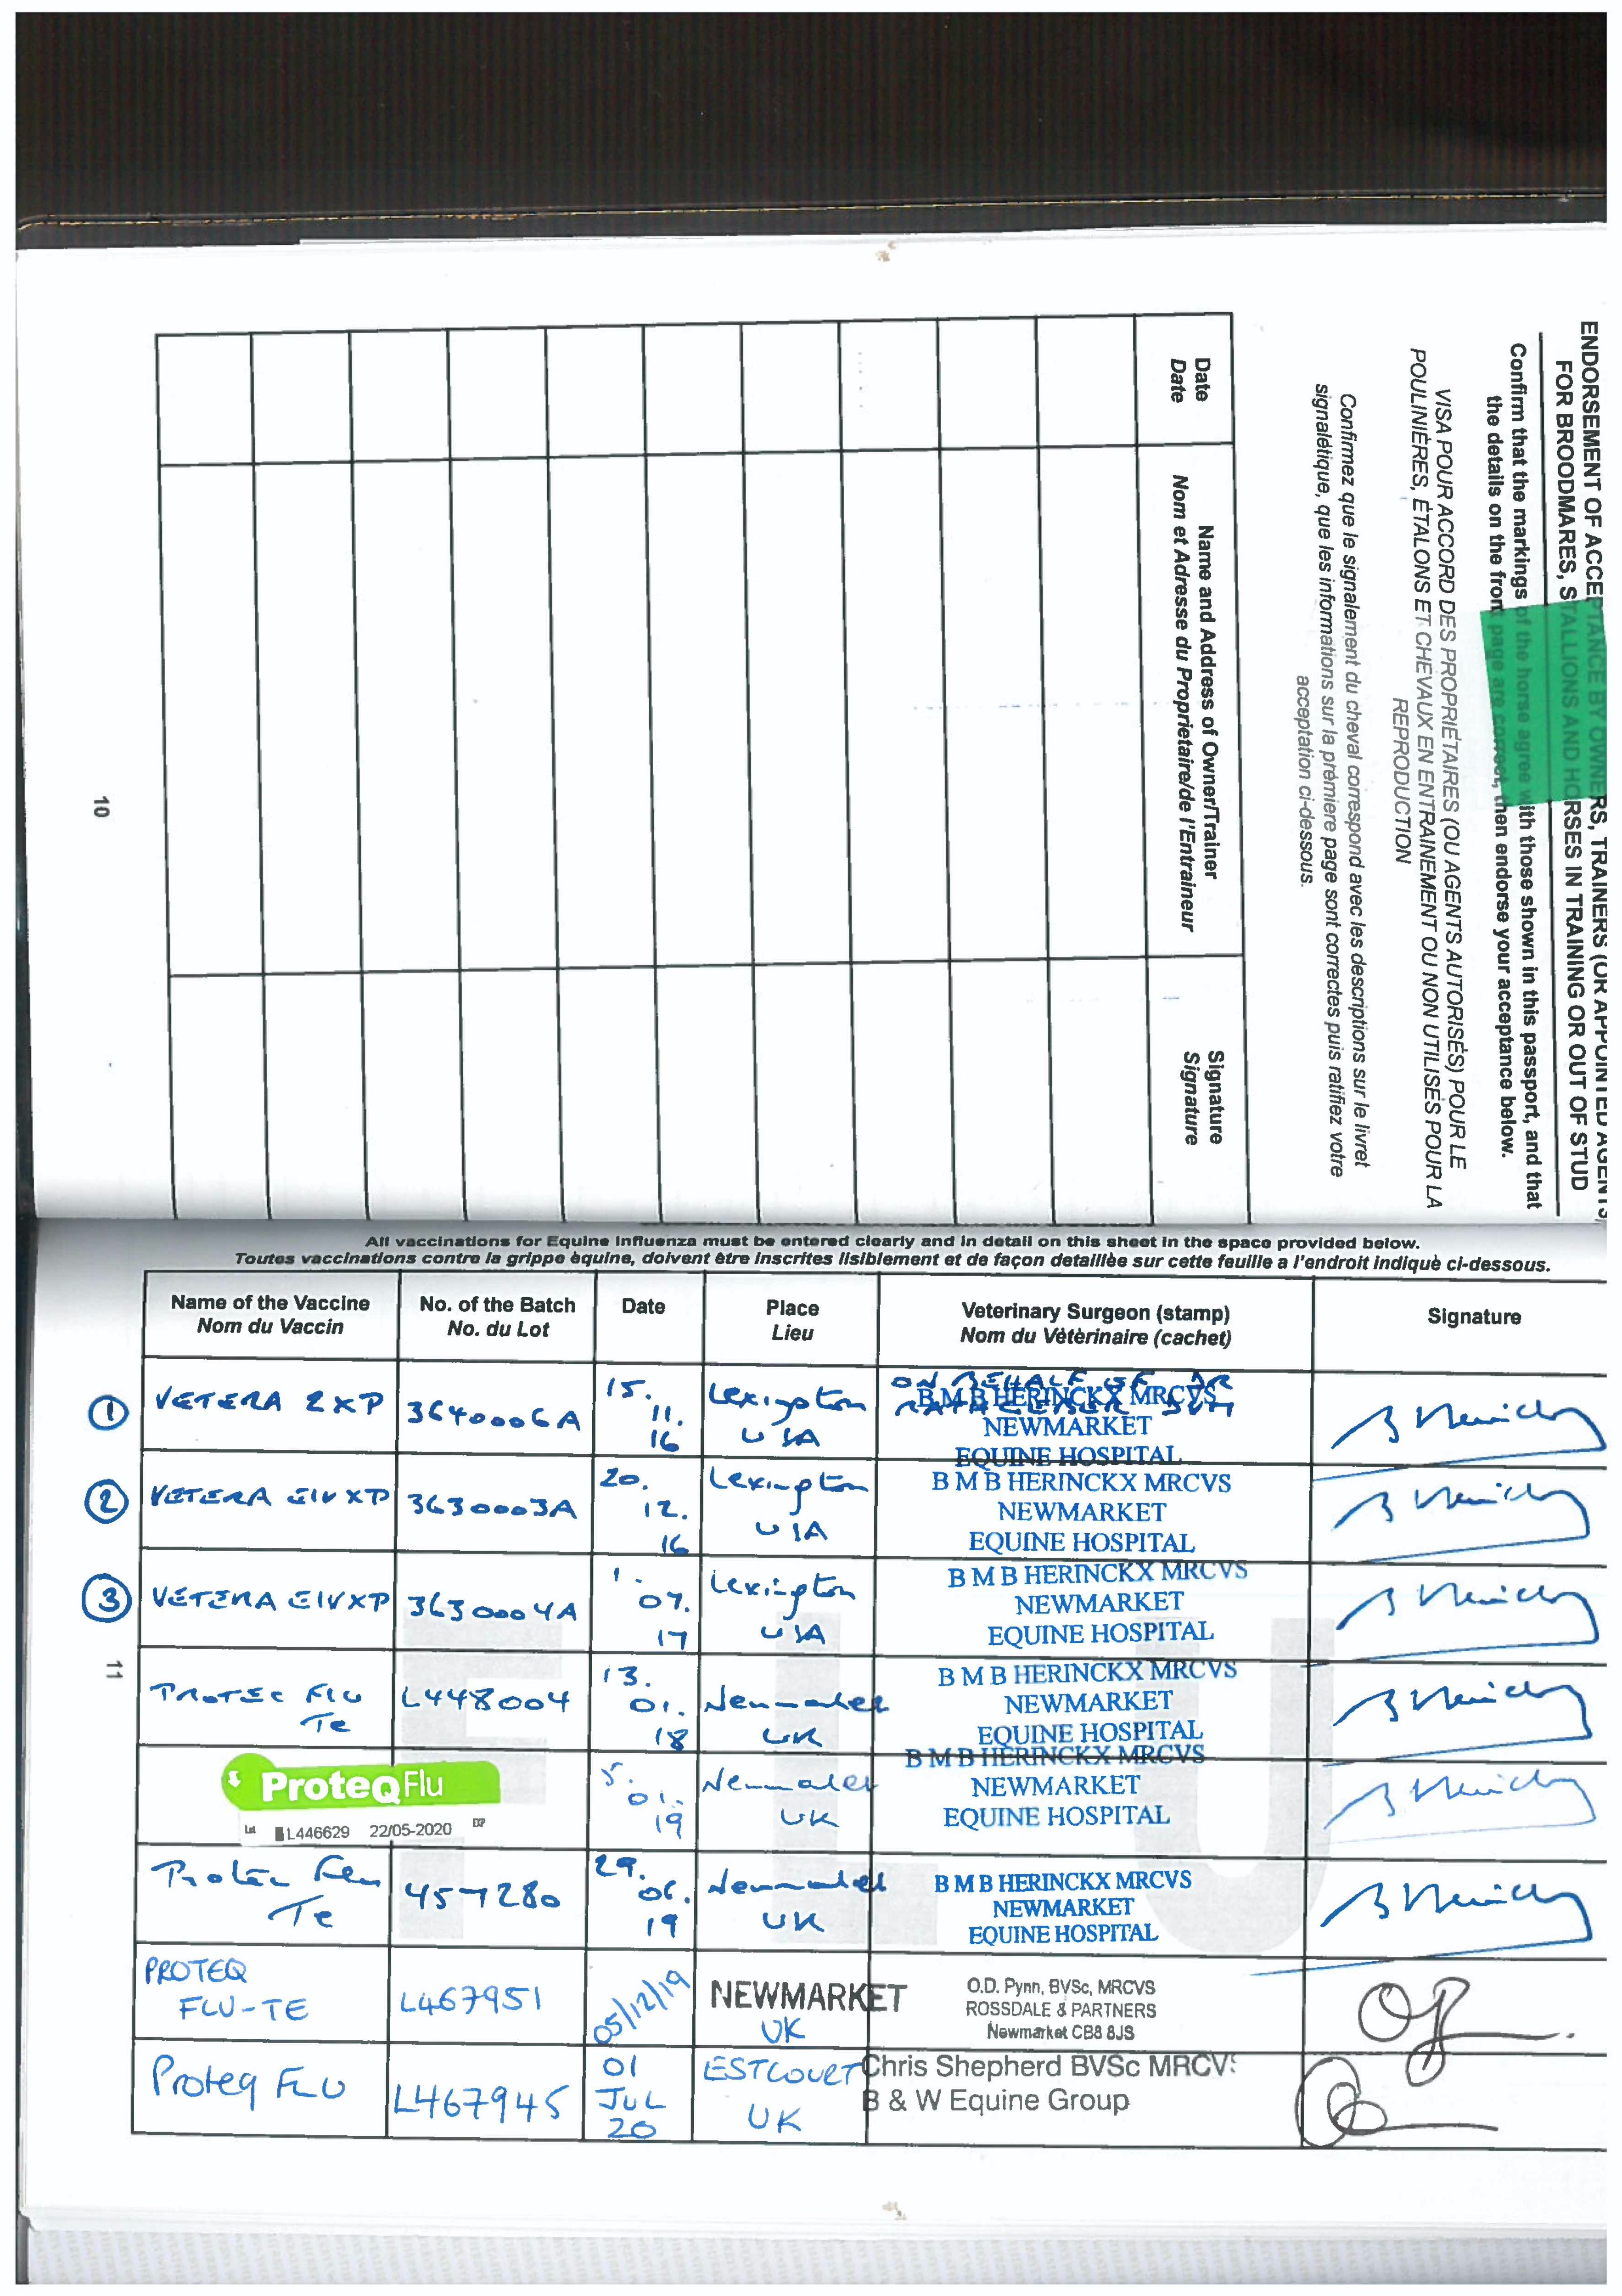 ENDORSEMENT OF ACCEPTANCE BY OWNERS, TRAINERS (OR APPOINTED AGENTS)
FOR BROODMARES, STALLIONS AND HORSES IN TRAINING OR OUT OF STUD
Confirm that the markings of the horse agree with those shown in this passport, and that
the details on the front page are correct, then endorse your acceptance below.
VISA POUR ACCORD DES PROPRIÉTAIRES (OU AGENTS AUTORISÉS) POUR LE
POULINIÈRES, ÉTALONS ET CHEVAUX EN ENTRAINEMENT OU NON UTILISÉS POUR LA
REPRODUCTION
Confirmez que le signalement du cheval correspond avec les descriptions sur le livret
signalétique, que les informations sur la première page sont correctes puis ratifiez votre
acceptation ci-dessous.
Date Name and Address of Owner/Trainer Signature
Date Nom et Adresse du Proprietaire/de l'Entraineur Signature
10
All vaccinations for Equine Influenza must be entered clearly and in detail on this sheet in the space provided below.
Toutes vaccinations contre la grippe èquine, doivent ètre inscrites lisiblement et de façon detaillèe sur cette feuille a l'endroit indiquè ci-dessous.
Name of the Vaccine No. of the Batch Date Place Veterinary Surgeon (stamp) Signature
Nom du Vaccin No. du Lot Lieu Nom du Vètèrinaire (cachet)
1 VETERA 2XP 3640006A 15. 11. 16 Lexington USA ON BEHALF OF DR
B M B HERINCKX MRCVS
NEWMARKET
EQUINE HOSPITAL
2 VETERA EIVXP 3630003A 20. 12. 16 Lexington USA B M B HERINCKX MRCVS
NEWMARKET
EQUINE HOSPITAL
3 VETERA EIVXP 3630004A 1. 07. 17 Lexington USA B M B HERINCKX MRCVS
NEWMARKET
EQUINE HOSPITAL
PROTEC FLU Te L448004 13. 01. 18 Newmarket UK B M B HERINCKX MRCVS
NEWMARKET
EQUINE HOSPITAL
ProteqFlu 5. 01. 19 Newmarket UK B M B HERINCKX MRCVS
Lot L446629 22/05-2020 EXP NEWMARKET
EQUINE HOSPITAL
Protec Flu Te 457280 29. 06. 19 Newmarket UK B M B HERINCKX MRCVS
NEWMARKET
EQUINE HOSPITAL
PROTEQ FLU-TE L467951 05/12/19 NEWMARKET UK O.D. Pynn, BVSc, MRCVS
ROSSDALE & PARTNERS
Newmarket CB8 8JS
Proteq FLU L467945 01 JUL 20 ESTCOURT UK Chris Shepherd BVSc MRCVS
B & W Equine Group
11
FLU